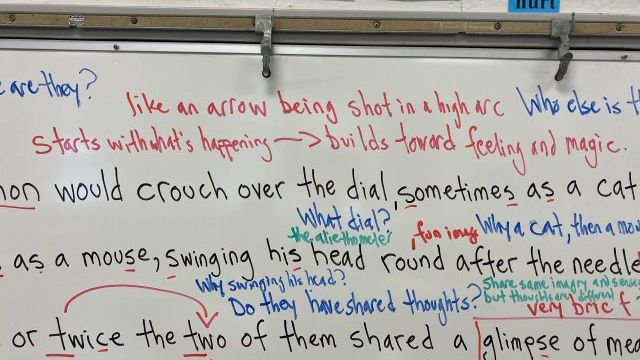 hurt
are they?
like an arrow being shot in a high arc
Who else is
starts with what's happening → builds toward feeling and magic.
would crouch over the dial, sometimes as a cat
What dial?
the aliethometer
, fun imag
Why a cat, then a
as a mouse, swinging his head round after the needle
Why swinging his head?
Do they have shared thoughts?
Share same imagry and senses
but thoughts are different
very brief
or twice the two of them shared a glimpse of